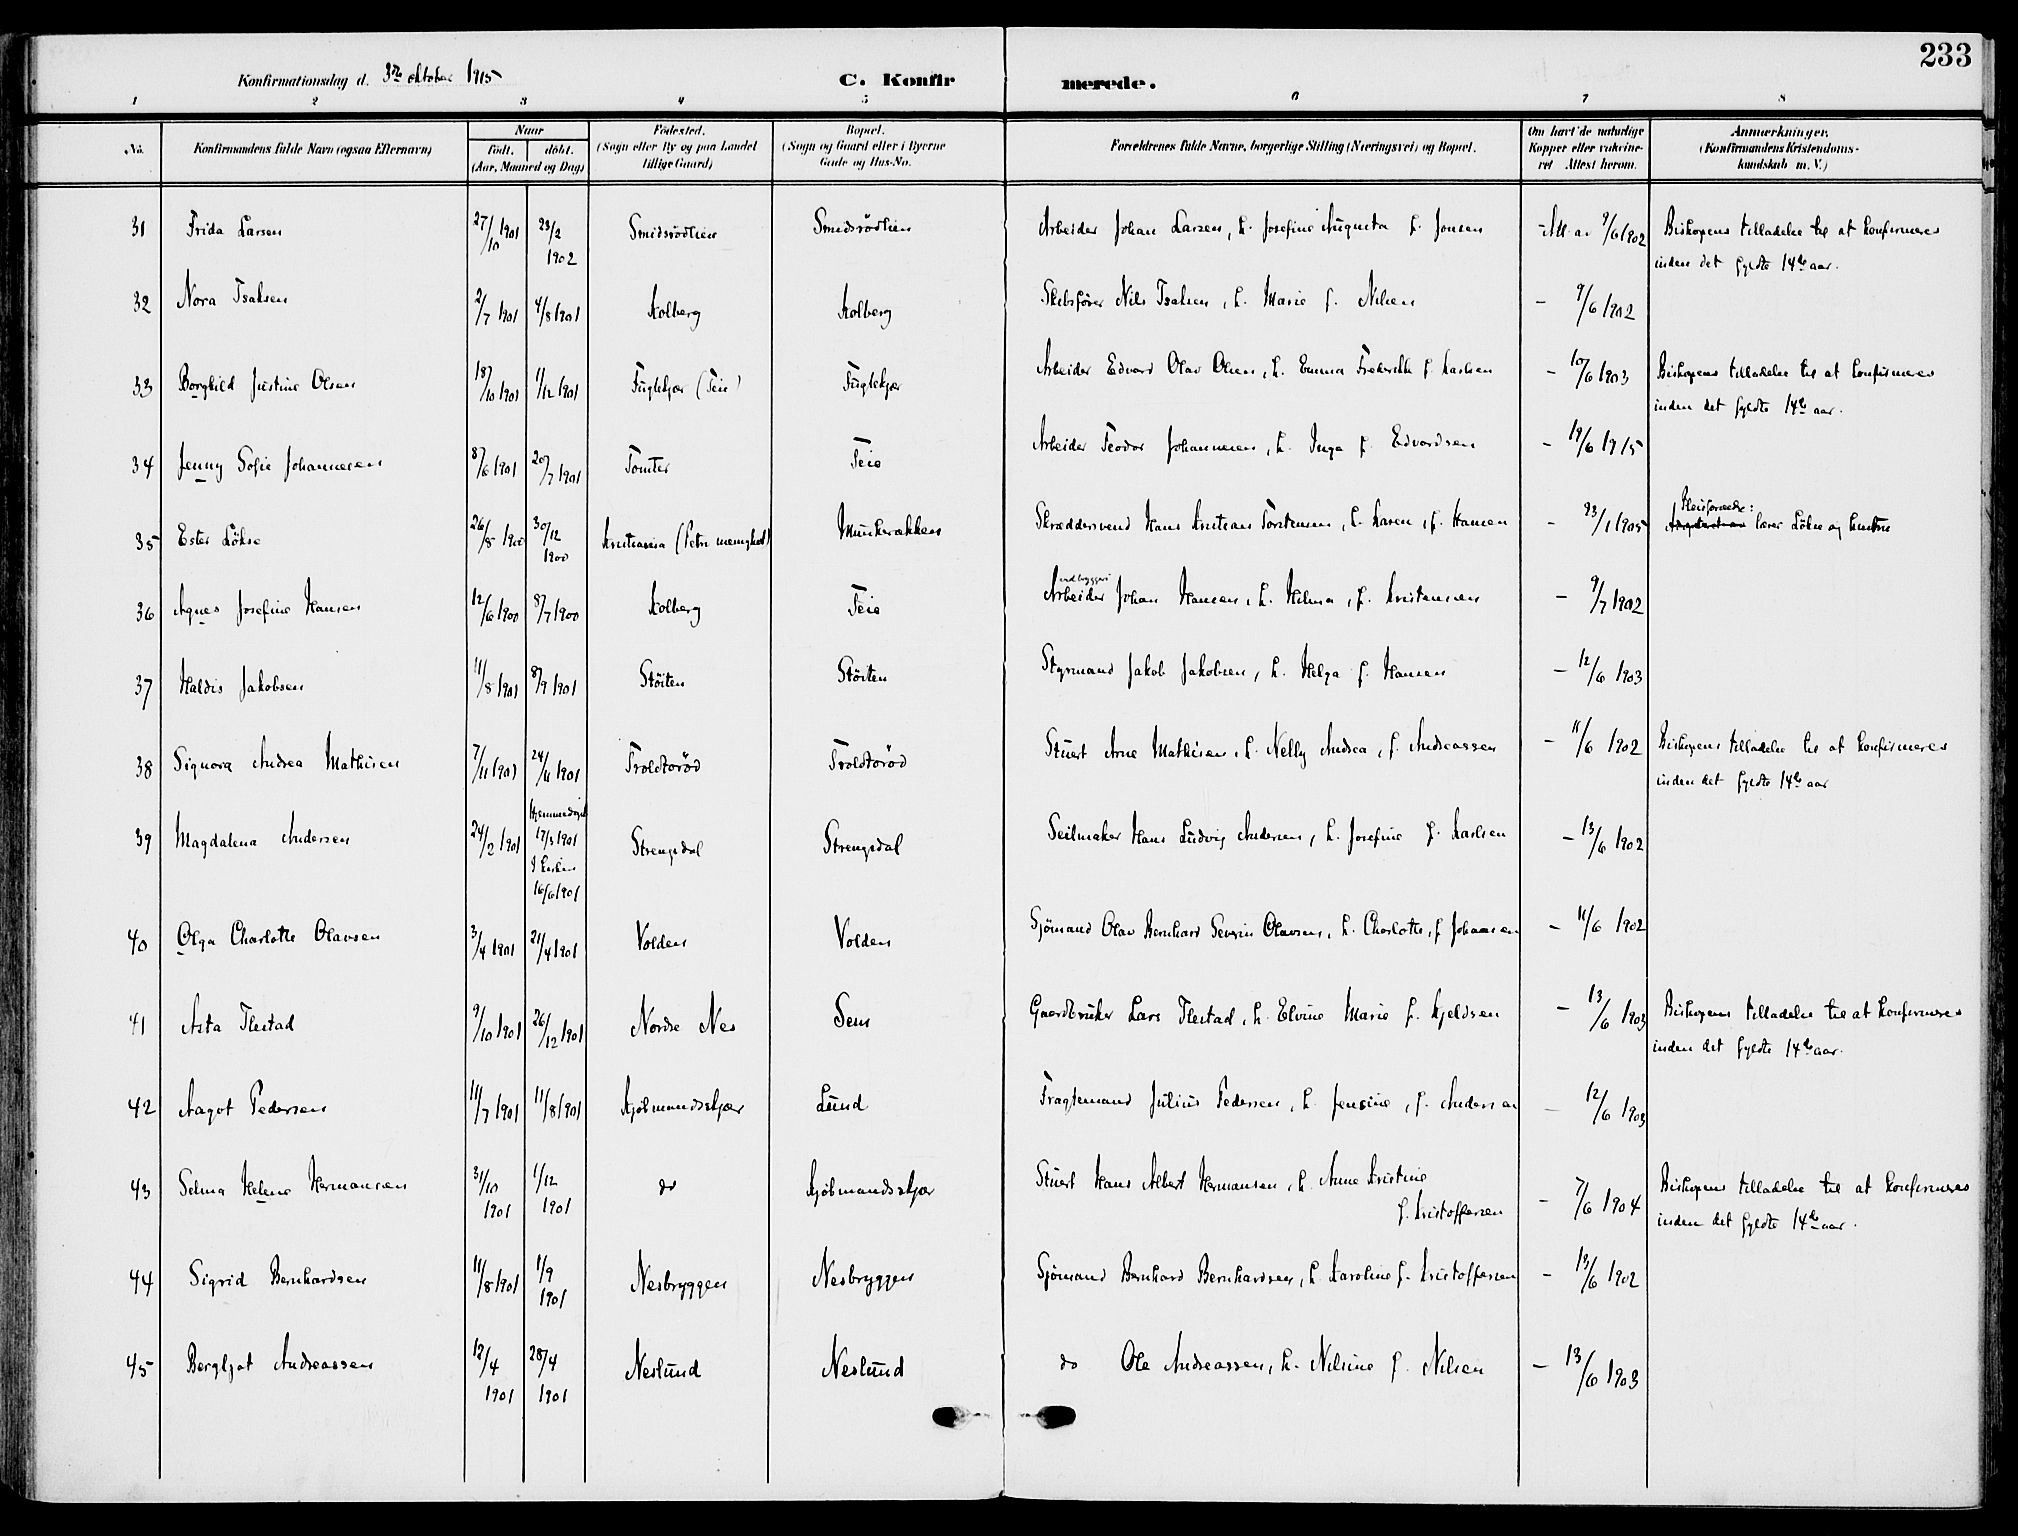 233
Konfirmationsdag d. 3die oktober 1915 C. Konfir merede.
1 2 3 4 5 6 7 8
No. Konfirmandens fulde Navn (ogsaa Efternavn) Naar født. døbt. (Aar, Maaned og Dag) Fødested. (Sogn eller By og paa Landet tillige Gaard) Bopæl. (Sogn og Gaard eller i Byerne Gade og Hus-No. Forældrenes fulde Navne, borgerlige Stilling (Næringsvei) og Bopæl. Om havt de naturlige Kopper eller vakcineret Attest herom. Anmærkninger. (Konfirmandens Kristendomskundskab m. V.)
31 Frida Larsen 27/10 1901 23/2 1902 Smidsrödlien Smidsrödlien Arbeider Johan Larsen, h. Josefine Augusta f. Jonsen Att. a. 9/6 1902 Biskopens tilladelse til at konfirmeres
inden det fyldte 14de aar.
32 Nora Isaksen 2/7 1901 4/8 1901 Kolberg Kolberg Skibsförer Nils Isaksen, h. Marie f. Nilsen - 9/6 1902
33 Borghild Justine Olsen 18/10 1901 1/12 1901 Fuglekjær (Teie) Fuglekjær Arbeider Edvard Olav Olsen, h. Emma Fredrikke f. Karlsen - 10/6 1903 Biskopens tilladelse til at konfirmeres
inden det fyldte 14de aar.
34 Jenny Sofie Johannesen 8/6 1901 20/7 1901 Tomter Teie Arbeider Teodor Johannesen, h. Inga f. Edvardsen - 19/6 1915
35 Ester Lökse 26/8 1900 30/12 1900 Kristiania (Petri menighed) Munkerekken Skræddersvend Hans Kristian Torstensen, h. Karen, f. Hansen - 23/1 1905 Pleiforældre:
lærer Lökse og hustru
36 Agnes Josefine Hansen 12/6 1900 8/7 1900 Kolberg Teie Arbeider Johan Hansen, h. Hilma, f. Kristensen - 9/7 1902
37 Haldis Jakobsen 11/8 1901 8/9 1901 Stöiten Stöiten Styrmand Jakob Jakobsen, h. Helga f. Hansen - 12/6 1903
38 Signora Andrea Mathisen 7/11 1901 24/11 1901 Troldsröd Troldsröd Stuert Arne Mathisen, h. Nelly Andrea, f. Andreassen - 11/6 1902 Biskopens tilladelse til at konfirmeres
inden det fyldte 14de aar
39 Magdalena Andersen 24/2 1901 Hjemmedöpt 17/3 1901 I kirken 16/6 1901 Strengsdal Strengsdal Seilmaker Hans Ludvig Andersen, h. Josefine f. Karlsen - 13/6 1902
40 Olga Charlotte Olavsen 3/4 1901 21/4 1901 Volden Volden Sjömand Olav Bernhard Severin Olavsen, h. Charlotte, f. Johansen - 11/6 1902
41 Asta Ilestad 9/10 1901 26/12 1901 Nordre Nes Sem Gaardbruker Lars Ilestad, h. Elvine Marie f. Kjeldsen - 13/6 1903 Biskopens tilladelse til at konfirmeres
inden det fyldte 14de aar.
42 Aagot Pedersen 11/7 1901 11/8 1901 Kjöbmandsskjær Lund Fragtemand Julius Pedersen, h. Jensine, f. Andersen - 12/6 1903
43 Selma Helene Hermansen 31/10 1901 1/12 1901 do Kjöbmandsskjær Stuert Hans Albert Hermansen, h. Anne Kristine
f. Kristoffersen - 7/6 1904 Biskopens tilladelse til at konfirmeres
inden det fyldte 14de aar.
44 Sigrid Bernhardsen 11/8 1901 1/9 1901 Nesbryggen Nesbryggen Sjömand Bernhard Bernhardsen, h. Karoline f. Kristoffersen - 13/6 1902
45 Bergljot Andreassen 12/4 1901 28/4 1901 Neslund Neslund do Ole Andreassen, h. Nilsine f. Nilsen - 13/6 1903